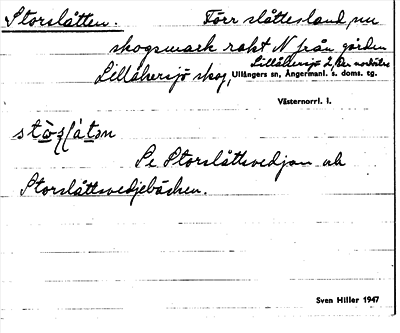 Storslåtten. Förr slåttesland, nu
skogsmark rakt N från gården
Lillåkersjö 2, Den nordöstra
Lillåkersjö skog, Ullångers sn, Ångermanl. s. doms. tg.
Västernorrl. l.
Se Storslåttsvedjan och
Storslåttsvedjebäcken.
Sven Hiller 1947